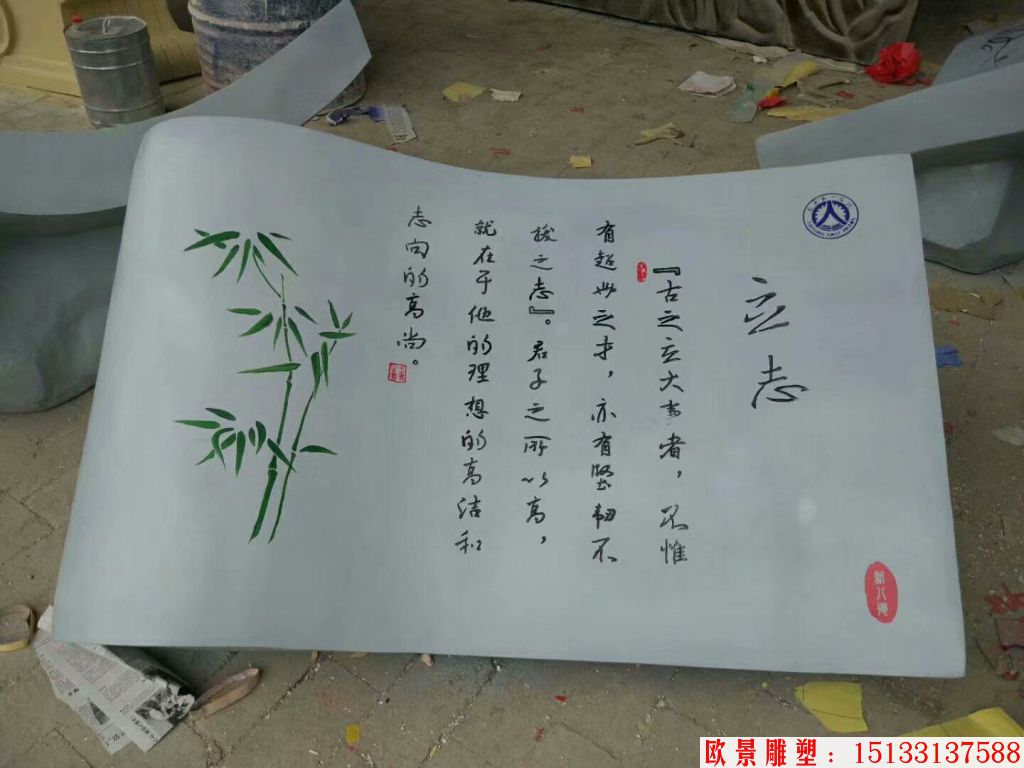 立志
『古之立大事者，不惟
有超世之才，亦有坚韧不
拔之志』。君子之所以高，
就在于他的理想的高洁和
志向的高尚。
新八德
欧景雕塑：15133137588